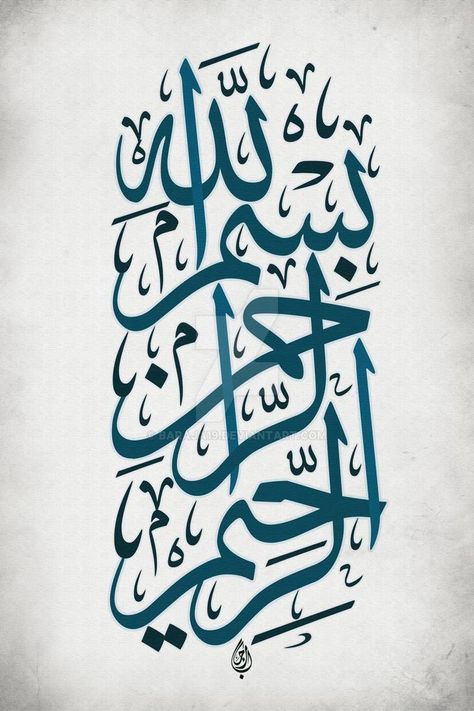 بِسْمِ اللَّهِ
الرَّحْمٰنِ
الرَّحِيمِ
© BARAJA19.DEVIANTART.COM